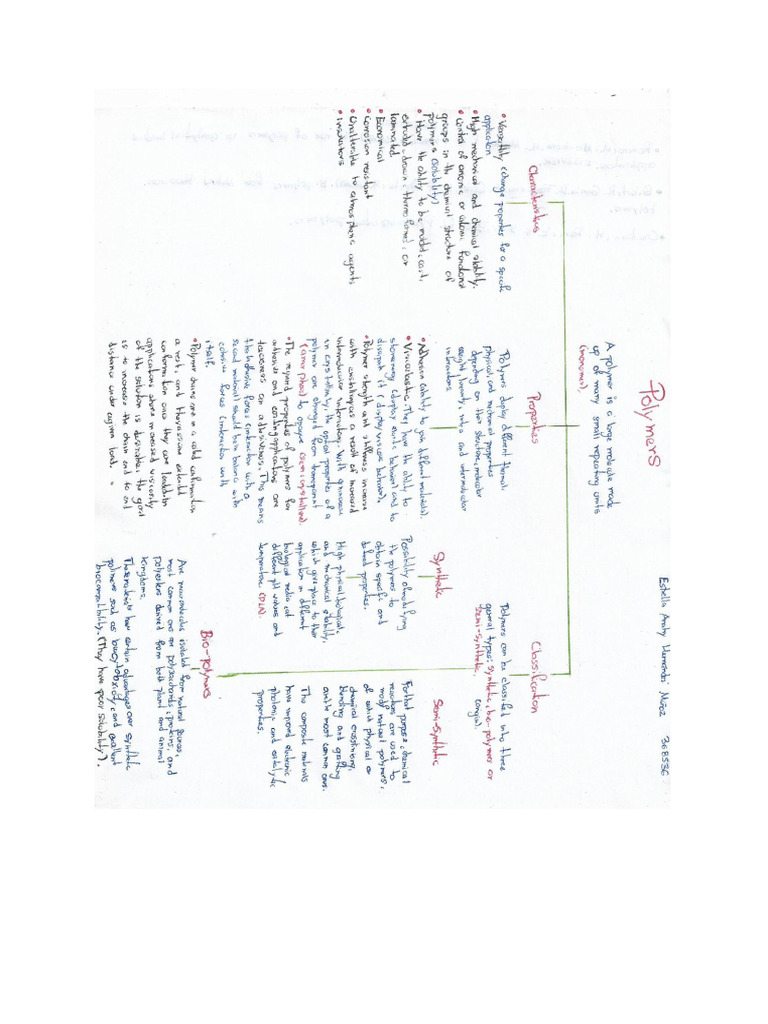 Estella Amby Hernández Muñoz 368536
Polymers
A polymer is a large molecule made
up of many small repeating units
(monomer).
Characteristics
• Versatility (change properties for a specific
application
• High mechanical and chemical stability.
• Control of anionic or cationic functional
groups in the chemical structure of
polymers (solubility)
• Have the ability to be molded, cast,
extruded, drawn, thermoformed, or
laminated
• Economical
• Corrosion resistant
• Unalterable to atmospheric agents
• insulators
Properties
Polymers display different thermal,
physical, and mechanical properties
depending on their structure, molecular
weight, linearity, intra and intermolecular
interactions
• Adhesion (ability to join different molecules).
• Viscoelastic. They have the ability to
store energy (display elastic behavior) and to
dissipate it (display viscous behavior).
• Polymer strength and stiffness increase
with crystallinity as a result of increased
intermolecular interactions. With an increase
in crystallinity, the optical properties of a
polymer are changed from transparent
(amorphous) to opaque (semi-crystalline).
• The required properties of polymers for
adhesive and coating applications are
tackiness and adhesiveness. This means
that adhesive forces (interaction with a
second material) should be in balance with
cohesive forces (interaction with
itself.
• Polymer chains are in a coiled conformation
at rest, and they assume extended
conformation once they are loaded. In
applications where increased viscosity
of the solution is desirable, the goal
is to increase the chain end to end
distance under a given load.
Classification
Polymers can be classified into three
general types: synthetic, bio-polymers or
semi-synthetic,
Synthetic
Possibility of modifying
the polymer to
obtain specific and
defined properties.
High physical, biological,
and mechanical stability,
which give place to their
application in different
biological media at
different pH values and
temperature. (PLA).
Semi-synthetic
For that purpose, chemical
reactions are used to
modify natural polymers,
of which physical or
chemical crosslinking,
blending and grafting
are the most common ones.
The composite matrices
have improved electronic
photonic and catalytic
properties.
Bio-polymers
Are macromolecules isolated from natural sources,
most common ones are polysaccharides, proteins, and
polyesters derived from both plant and animal
kingdoms.
These materials have certain advantages over synthetic
polymers such as low cytotoxicity and excellent
biocompatibility. (They have poor solubility).